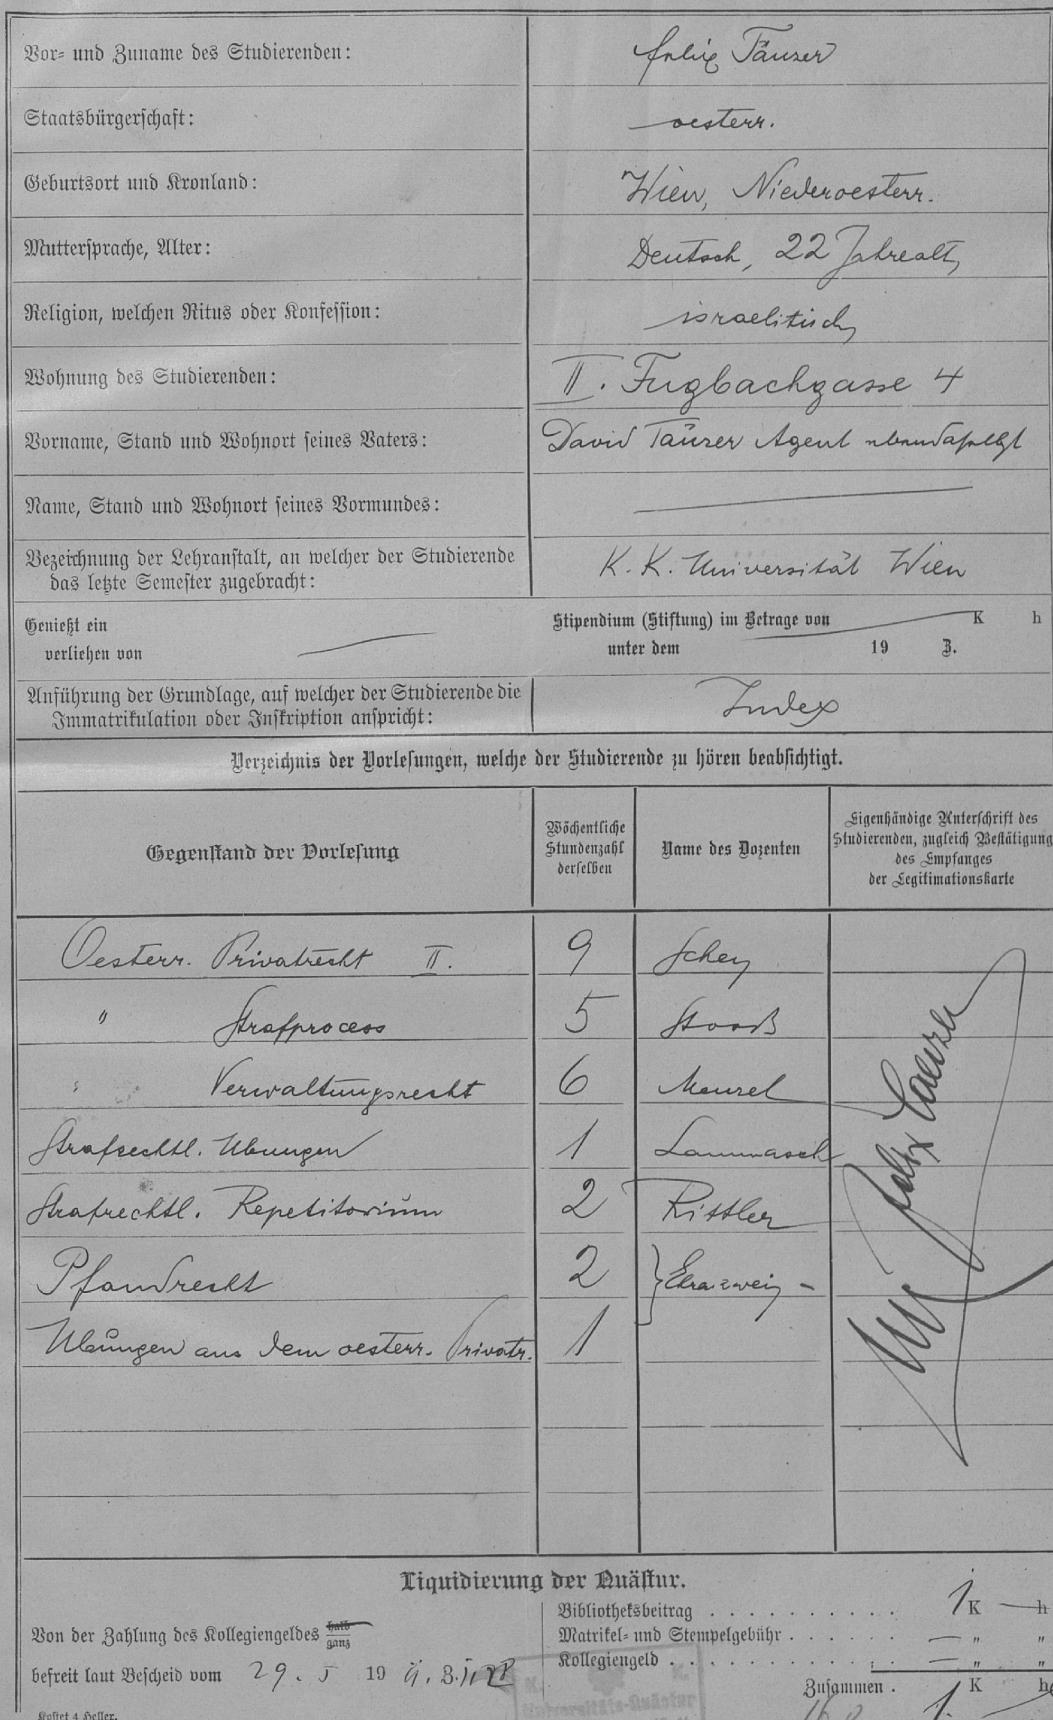 Vor- und Zuname des Studierenden: Felix Täuzer
Staatsbürgerschaft: oesterr.
Geburtsort und Kronland: Wien, Niederoesterr.
Muttersprache, Alter: Deutsch, 22 Jahre alt
Religion, welchen Ritus oder Konfession: israelitisch
Wohnung des Studierenden: II. Fugbachgasse 4
Vorname, Stand und Wohnort seines Vaters: David Täuzer Agent ebendaselbst
Name, Stand und Wohnort seines Vormundes:
Bezeichnung der Lehranstalt, an welcher der Studierende
das letzte Semester zugebracht: K. K. Universität Wien
Genießt ein Stipendium (Stiftung) im Betrage von K h
verliehen von unter dem 19 Z.
Anführung der Grundlage, auf welcher der Studierende die
Immatrikulation oder Inskription anspricht: Index
Verzeichnis der Vorlesungen, welche der Studierende zu hören beabsichtigt.
Gegenstand der Vorlesung
Wöchentliche
Stundenzahl
derselben
Name des Dozenten
Eigenhändige Unterschrift des
Studierenden, zugleich Bestätigung
des Empfanges
der Legitimationskarte
Oesterr. Privatrecht II. 9 Schey
" Strafprocess 5 Stooß
" Verwaltungsrecht 6 Menzel
Strafrechtl. Übungen 1 Lammasch
Strafrechtl. Repetitorium 2 Rittler
Pfandrecht 2 } Ehrenzweig
Übungen aus dem oesterr. Privatr. 1
Felix Täuzer
Liquidierung der Quästur.
Von der Zahlung des Kollegiengeldes halb
ganz
befreit laut Bescheid vom 29. 5 19 Z.
Bibliotheksbeitrag . . . . . . . . . . 1 K — h
Matrikel- und Stempelgebühr . . . . . . — " "
Kollegiengeld . . . . . . . . . . . . — " "
Zusammen . 1 K h
K. K.
Universitäts-Quästur
Kostet 4 Heller.